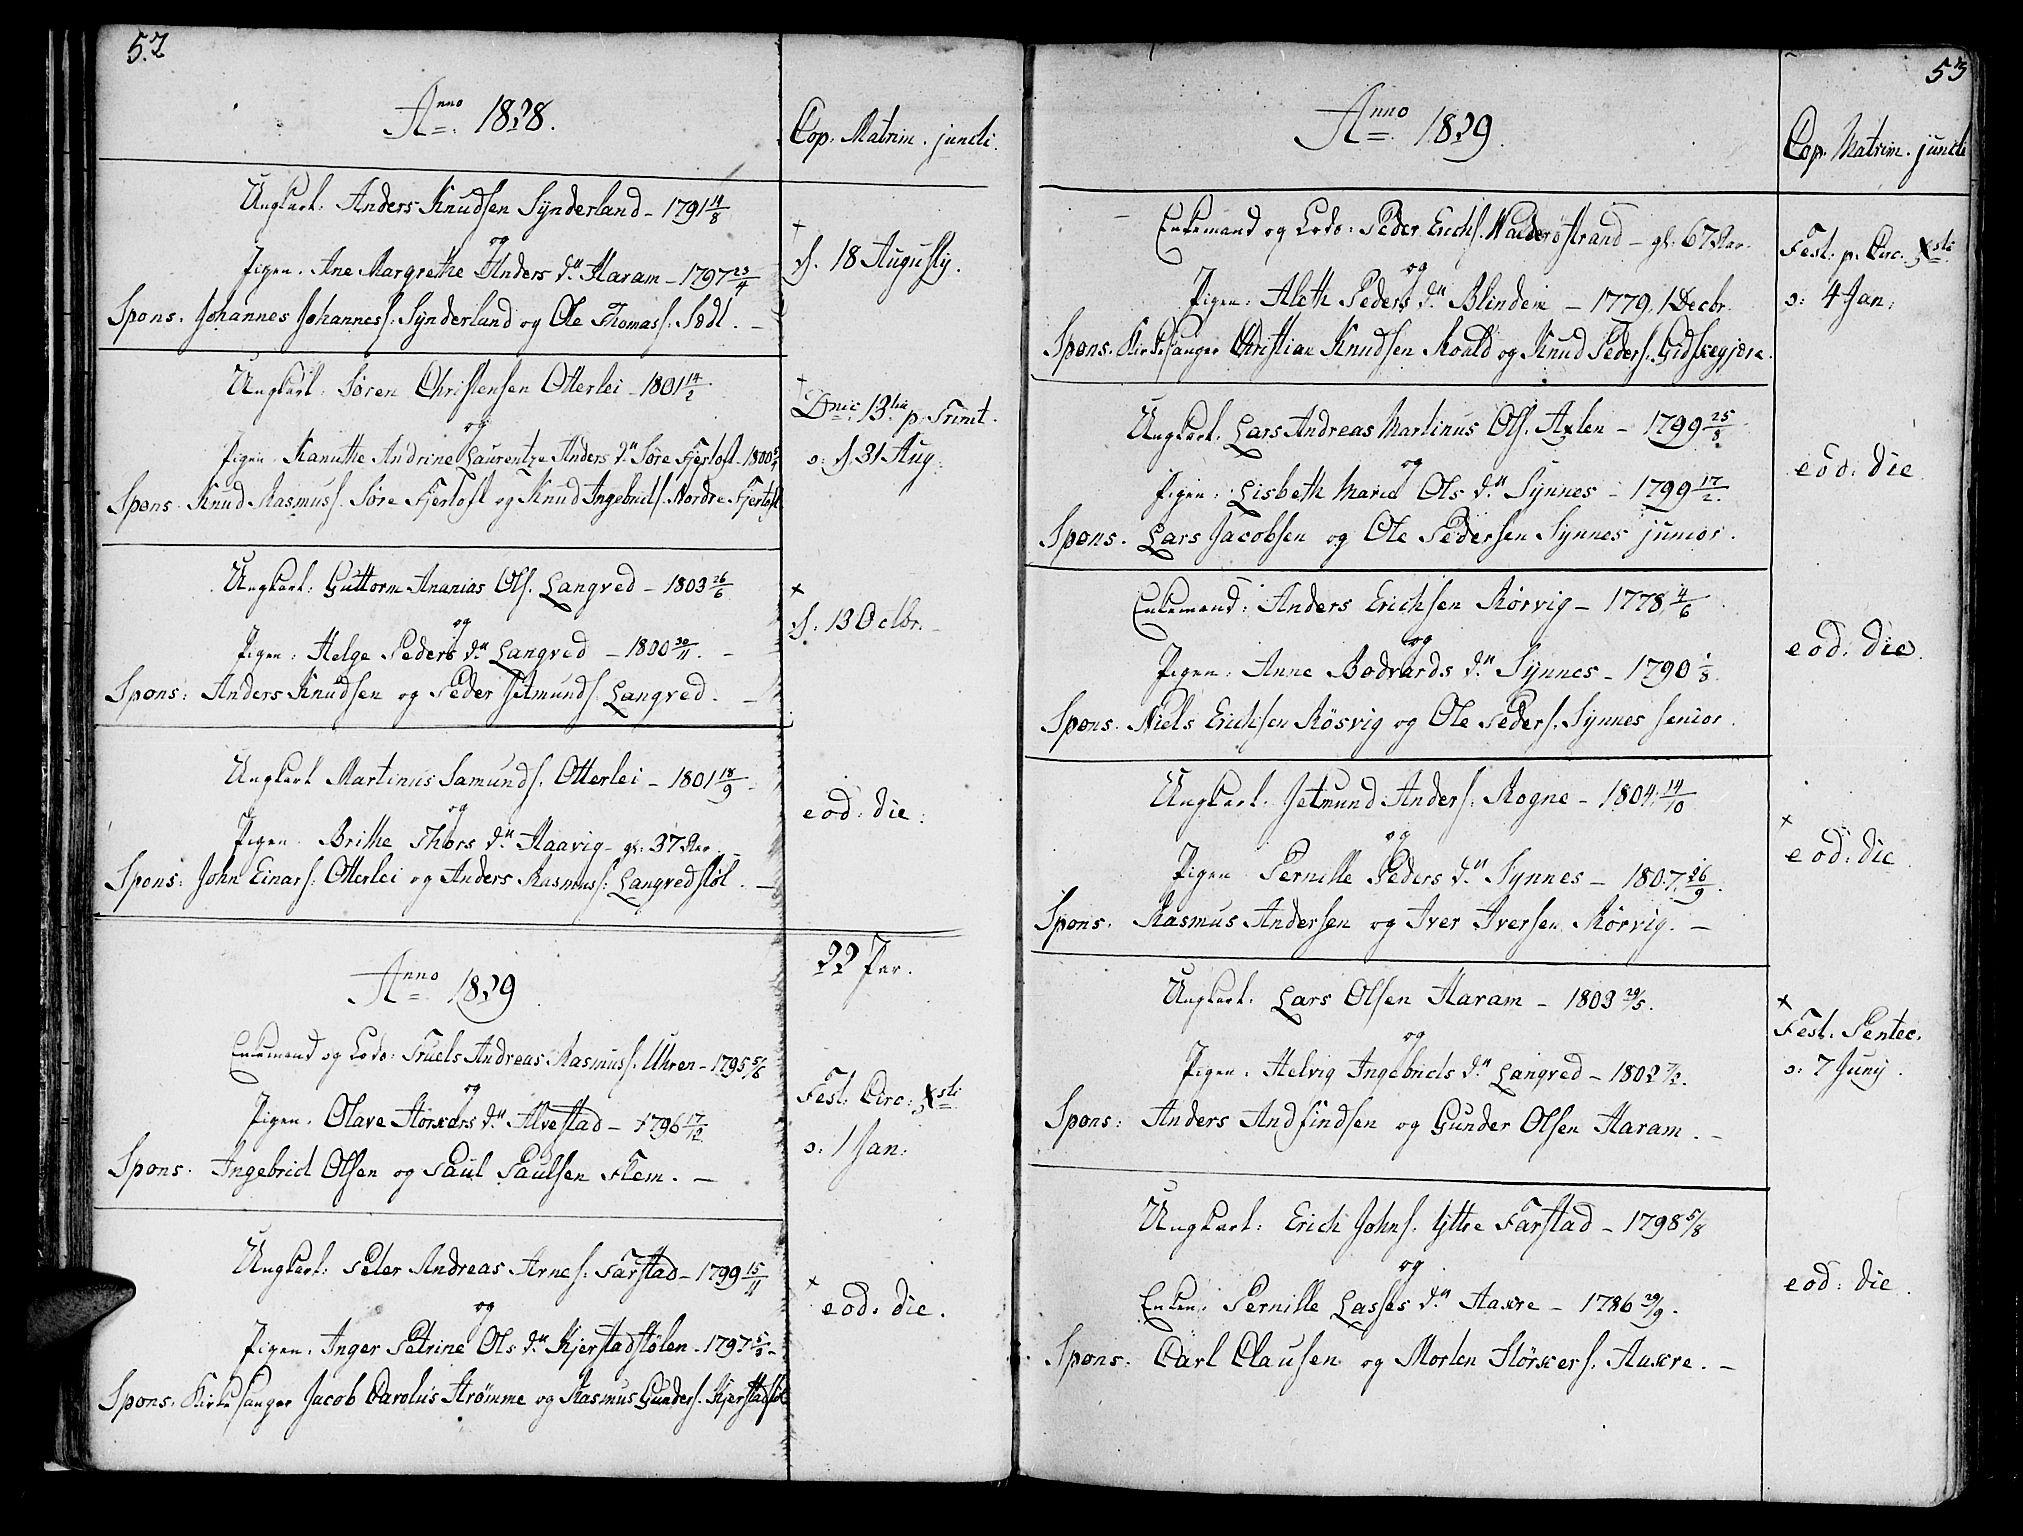 52
Anno 1828.
Cop. Matrim. juncti.
Ungkarl. Anders Knudsen Synderland - 1791 14/8
og
Pigen. Ane Margrethe Anders d.r Haram - 1797 23/4
Spons. Johannes Johanness: Synderland og Ole Thomass. Sæth. -
+
d. 18 Augusty.
Ungkarl. Søren Christensen Otterlei - 1801 14/2
og
Pigen. Kanutte Andrine Laurentze Anders d.r Søre Fjertoft - 1800
Spons. Knud Rasmuss. Søre Fjertoft og Knud Ingebrids. Nordre Fjertoft
+
Dnic. 13tia p. Trinit.
ɔ: d. 31 Aug.
Ungkarl: Guttorm Ananias Ols. Langved - 1803 26/6
og
Pigen: Helge Peders d.r Langved - 1800 30/11. -
Spons: Anders Knudsen og Peder Jetmunds. Langved. -
+
d. 13 Octbr. -
Ungkarl Martinus Samunds. Otterlei - 1801 18/9 -
og
Pigen. Brithe Thors d.r Haavig - gl. 37 Aar. -
Spons: John Einars: Otterlei og Anders Rasmuss: Langvedstøl. -
eod: die:
22 Par.
Anno 1829
Enkemand og Lods: Truels Andreas Rasmuss. Uhren - 1795 5/6
og
Pigen. Olave Storkers d.r Alvestad - 1796 17/12
Spons. Ingebrict Olsen og Paul Paulsen Flem. -
Fest: Circ: Xsti
ɔ: 1 Jan:
Ungkarl: Peter Andreas Arnes: Farstad - 1799 15/11
og
Pigen. Inger Petrine Ols d.r Kjerstadstølen - 1797
Spons. Kirkesanger Jacob Carolus Strømme og Rasmus Gunders. Kjerstadstøl
+
eod: die.
53
Anno 1829.
Cop. Matrim. juncti
Enkemand og Lods: Peder Erichs. Walderøstrand - gl: 67 Aar.
og
Pigen: Aleth Peders d.r Blindem - 1779. 1 Decbr.
Spons. Kirkesanger Christian Knudsen Roald og Knud Peders. Gidskegjære.
Fest: p. Circ. Xsti
ɔ: 4 Jan:
Ungkarl. Lars Andreas Martinus Ols. Axlen - 1799 25/8
og
Pigen: Lisbeth Maria Ols d.r Synnes - 1799 17/2.
Spons. Lars Jacobsen og Ole Pedersen Synnes junior.
eod: die
Enkemand: Anders Erichsen Rørvig - 1778 4/6
og
Pigen: Anne Bodvards d.r Synnes - 1790 1/8.
Spons. Niels Erichsen Rösvig og Ole Peders. Synnes senior.
eod: die.
Ungkarl. Jetmund Anders. Rogne - 1804. 14/10
og
Pigen Pernille Peders d.r Synnes - 1807. 26/9.
Spons. Rasmus Andersen og Iver Iversen Rørvig. -
+
eod: die.
Ungkarl. Lars Olsen Haram - 1803 29/5.
og
Pigen. Helvig Ingebricts d.r Langved - 1802
Spons: Anders Andfindsen og Gunder Olsen Haram. -
+
Fest. Pentec.
ɔ: 7 Juny.
Ungkarl: Erich Johns. Yttre Farstad - 1798 5/8
og
Enken: Pernille Lasses d.r Aakre - 1786 29/9.
Spons. Carl Clausen og Morten Störkers. Aakre. -
eod: die.